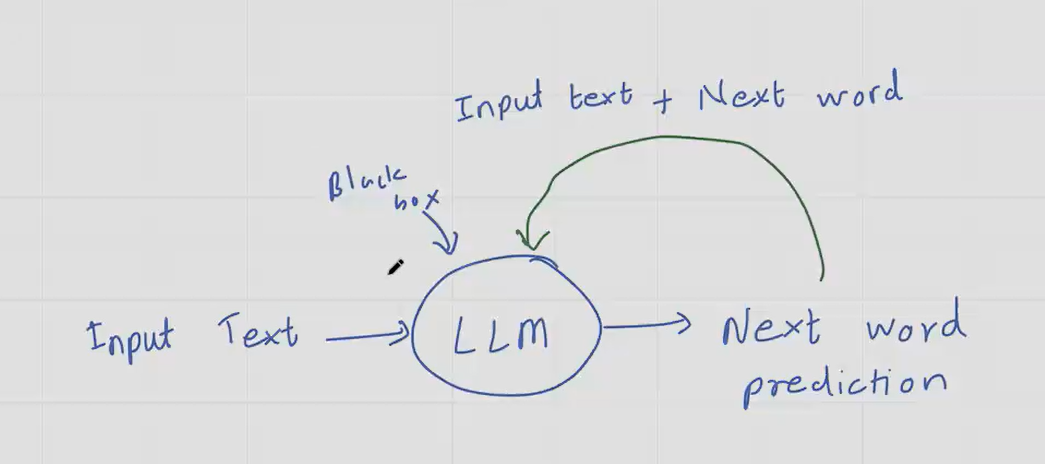 Input text + Next word
Black
box
Input Text
LLM
Next word
prediction